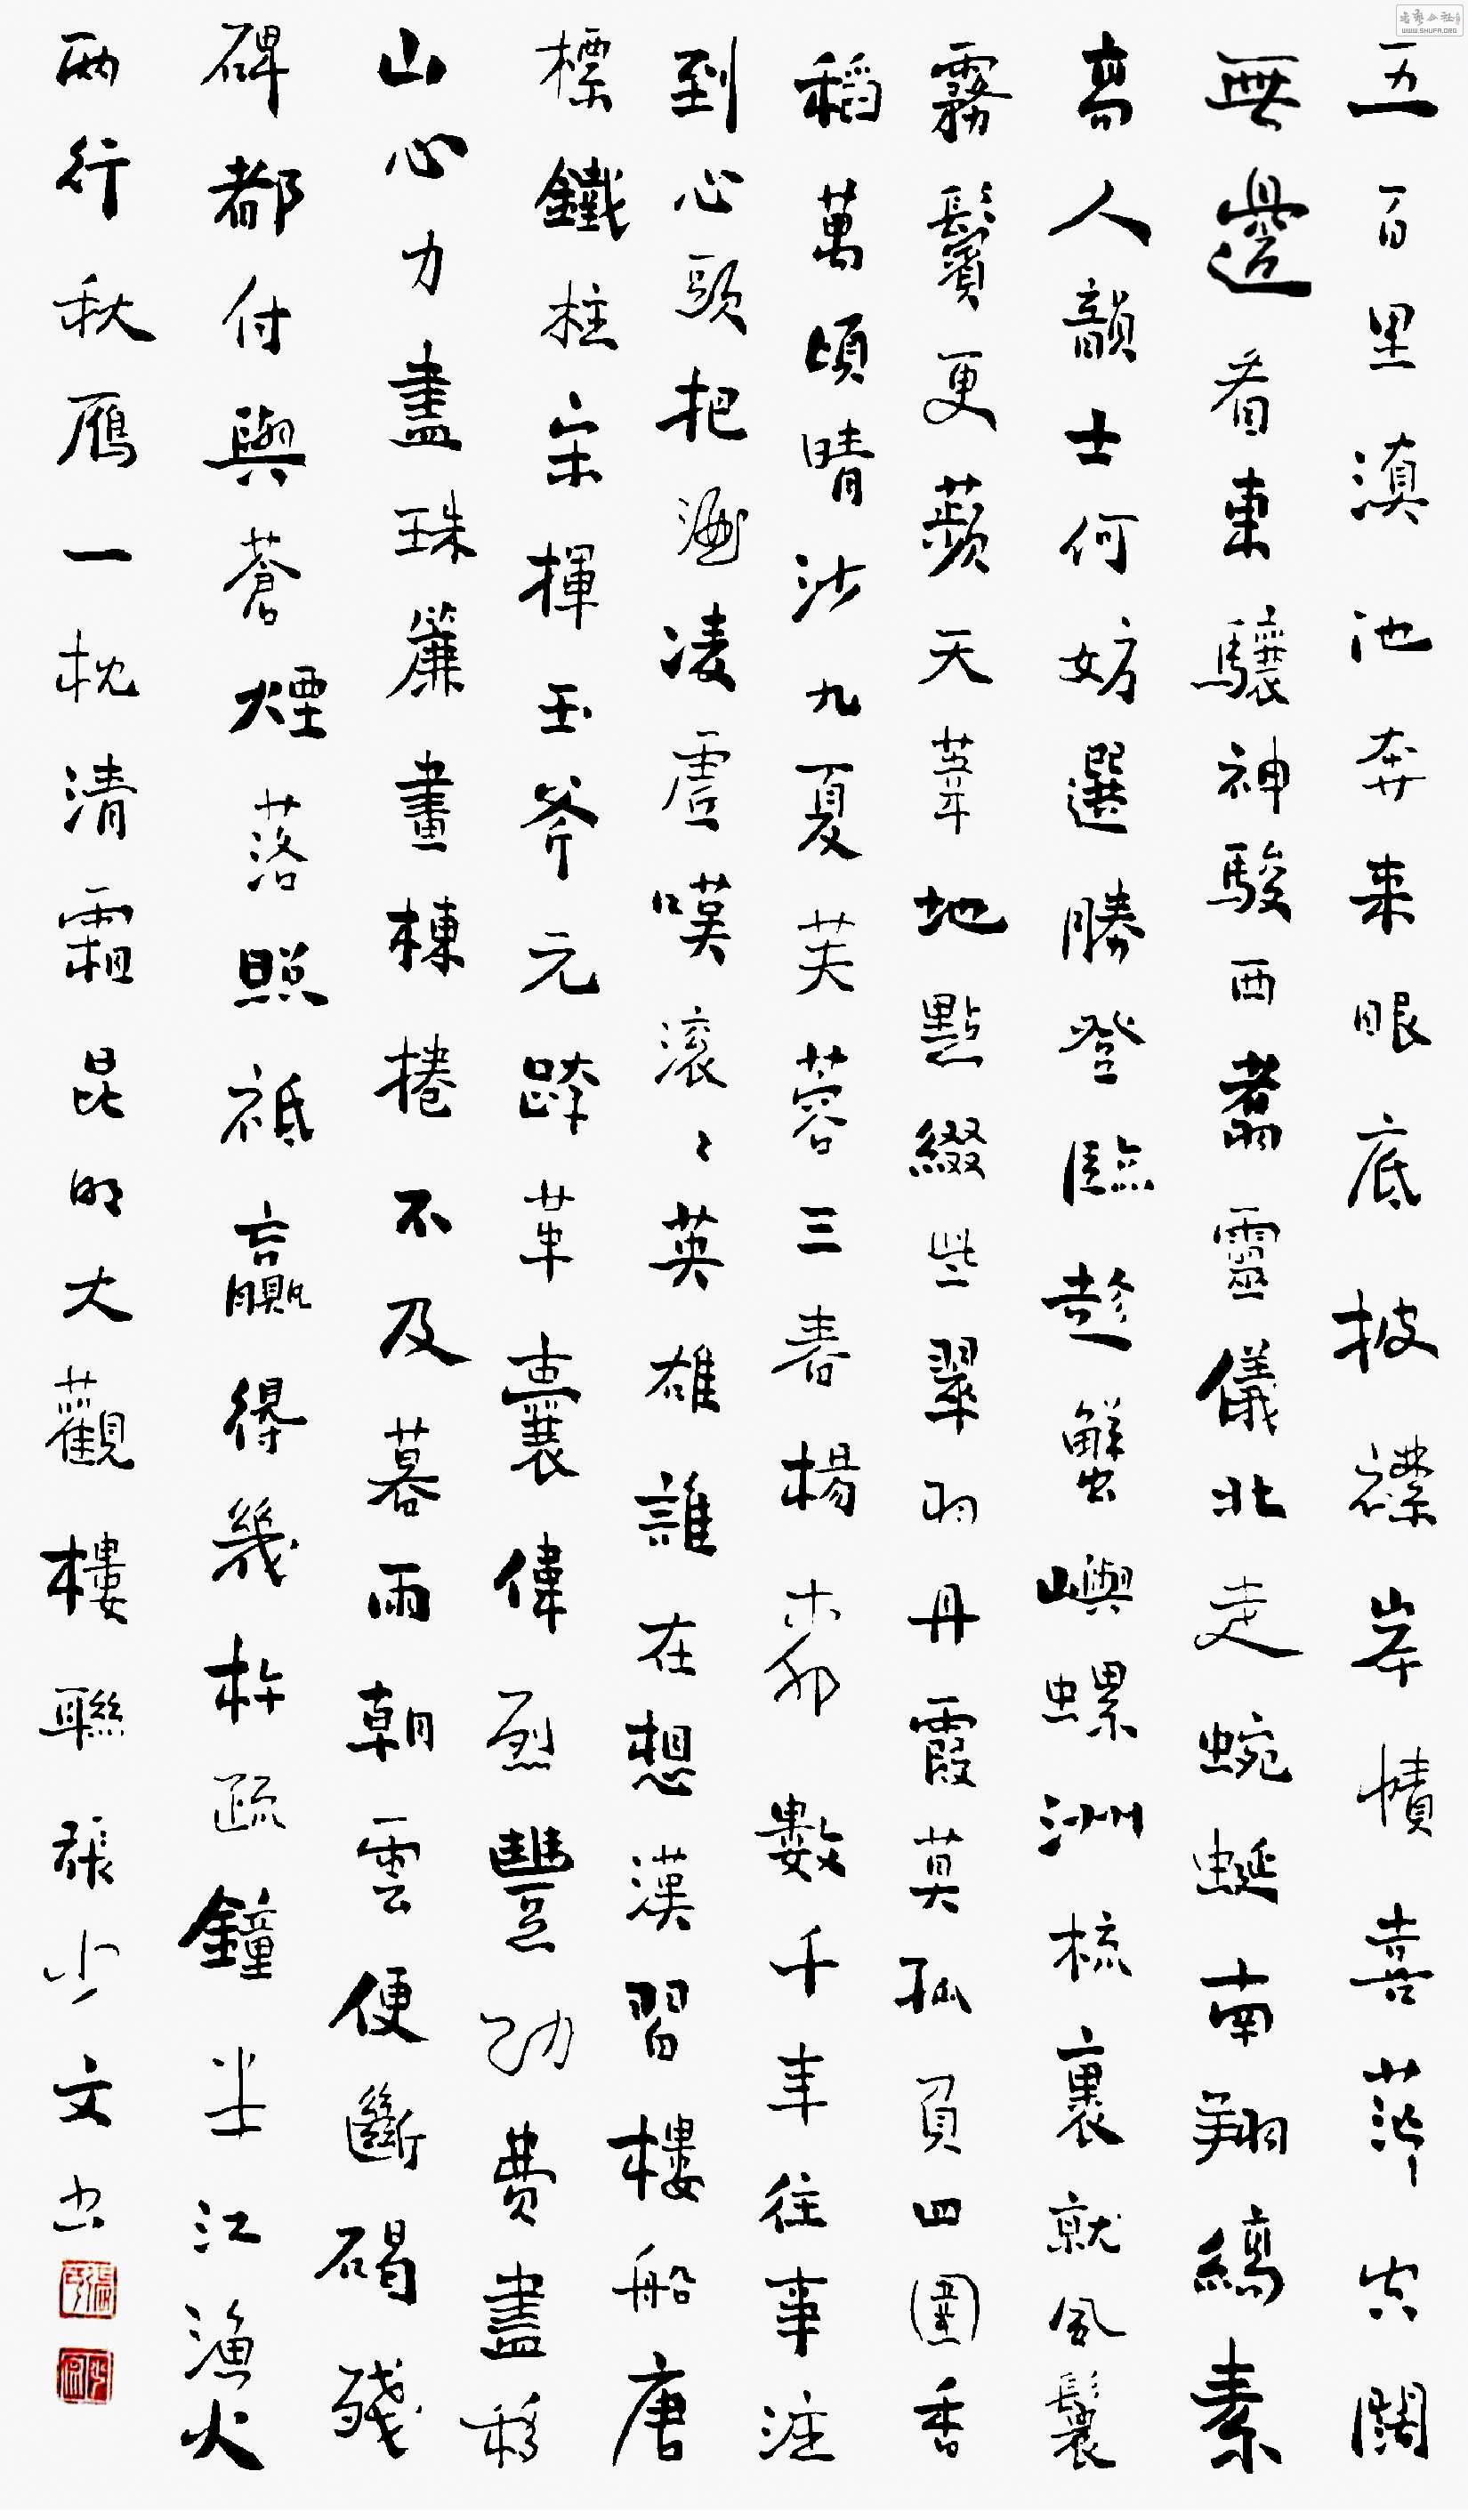 五百里滇池奔来眼底披襟岸幘喜茫茫空闊
無邊看東驤神駿西翥靈儀北走蜿蜒南翔縞素
高人韻士何妨選勝登臨趁蟹嶼螺洲梳裹就風鬟
霧鬢更蘋天葦地點綴些翠羽丹霞莫孤負四圍香
稻萬頃晴沙九夏芙蓉三春楊柳數千年往事注
到心頭把酒凌虛嘆滾〻英雄誰在想漢習樓船唐
標鐵柱宋揮玉斧元跨革囊偉烈豐功費盡移
山心力盡珠簾畫棟捲不及暮雨朝雲便斷碣殘
碑都付與蒼煙落照祇贏得幾杵疏鐘半江漁火
兩行秋雁一枕清霜 昆明大觀樓聯 張少文书
书艺公社
WWW.SHUFA.ORG